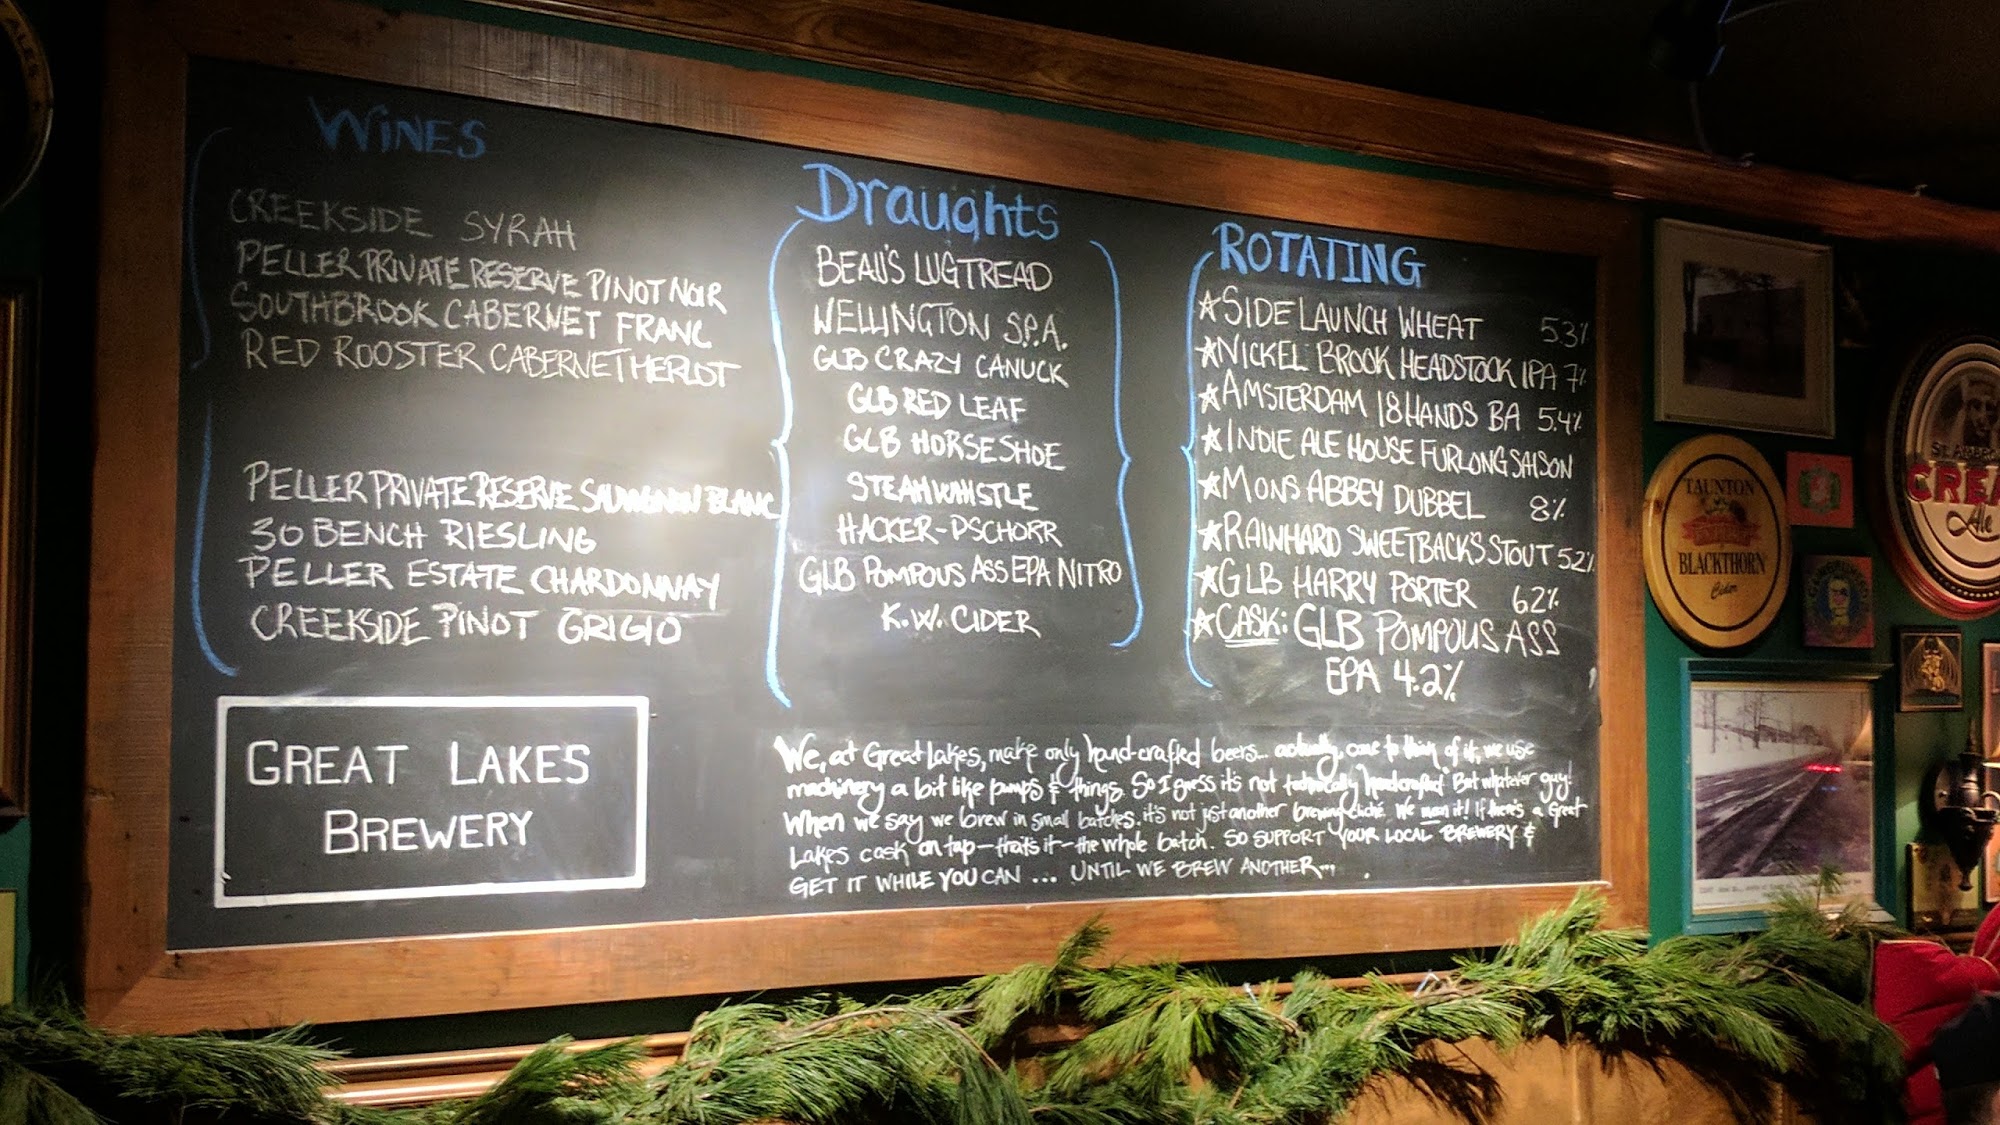 WINES
CREEKSIDE SYRAH
PELLER PRIVATE RESERVE PINOT NOIR
SOUTHBROOK CABERNET FRANC
RED ROOSTER CABERNET MERLOT
PELLER PRIVATE RESERVE SAUVIGNON BLANC
30 BENCH RIESLING
PELLER ESTATE CHARDONNAY
CREEKSIDE PINOT GRIGIO
GREAT LAKES
BREWERY
Draughts
BEAU'S LUGTREAD
WELLINGTON S.P.A.
GLB CRAZY CANUCK
GLB RED LEAF
GLB HORSESHOE
STEAMWHISTLE
HACKER-PSCHORR
GLB POMPOUS ASS EPA NITRO
K.W. CIDER
ROTATING
★SIDE LAUNCH WHEAT 5.3%
★NICKEL BROOK HEADSTOCK IPA 7%
★AMSTERDAM 18 HANDS BA 5.4%
★INDIE ALE HOUSE FURLONG SAISON
★MONS ABBEY DUBBEL 8%
★RAINHARD SWEETBACK'S STOUT 5.2%
★GLB HARRY PORTER 6.2%
★CASK: GLB POMPOUS ASS
EPA 4.2%
We, at Great Lakes, make only hand-crafted beers... actually, come to think of it, we use
machinery a bit like pumps & things. So I guess it's not technically "handcrafted". But whatever guy!
When we say we brew in small batches, it's not just another brewing cliché. We mean it! If there's a Great
Lakes cask on tap—that's it—the whole batch. SO SUPPORT YOUR LOCAL BREWERY &
GET IT WHILE YOU CAN ... UNTIL WE BREW ANOTHER...
TAUNTON
BLACKTHORN
Cider
CREA
Ale